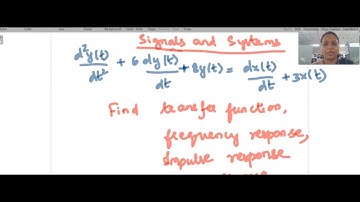 Signals and Systems
d²y(t)/dt² + 6 dy(t)/dt + 8y(t) = dx(t)/dt + 3x(t)
Find transfer function,
frequency response,
Impulse response